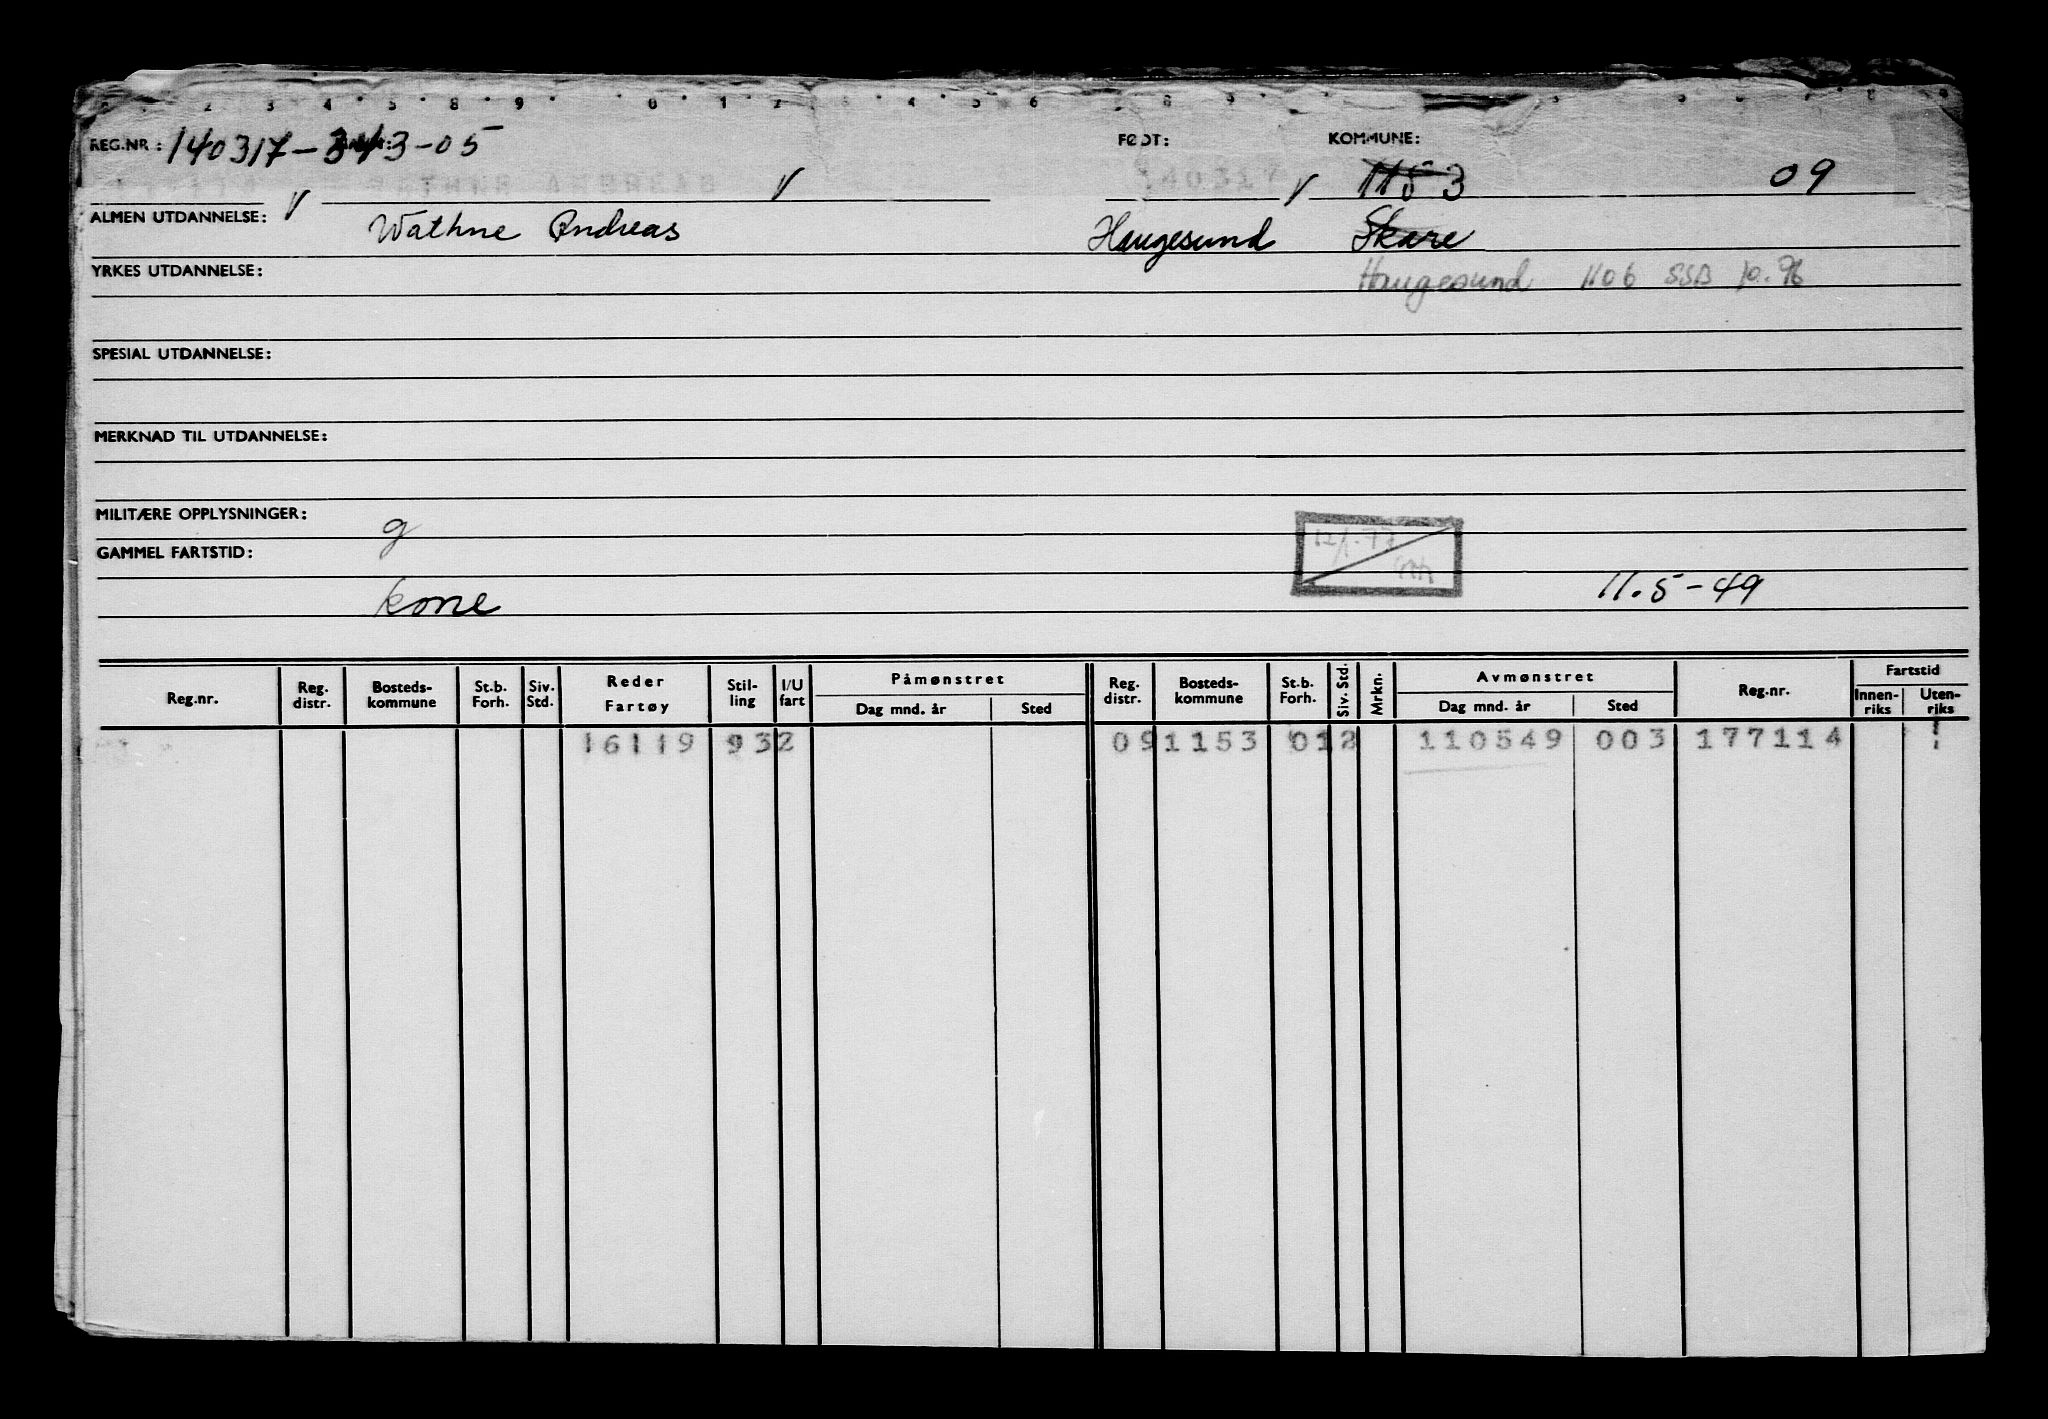 REG.NR.: 140317-343-05 FØDT: KOMMUNE:
140317 1153 09
ALMEN UTDANNELSE: Wathne Andreas Haugesund Skare
YRKES UTDANNELSE: Haugesund 1106 SSB
SPESIAL UTDANNELSE:
MERKNAD TIL UTDANNELSE:
MILITÆRE OPPLYSNINGER: g
GAMMEL FARTSTID:
kone 11.5-49
Reg.nr. Reg. distr. Bosteds- kommune St.b. Forh. Siv. Std. Reder Fartøy Stil- ling I/U fart Påmønstret Dag mnd. år Sted Reg. distr. Bosteds- kommune St.b. Forh. Siv. Std. Mrkn. Avmønstret Dag mnd. år Sted Reg.nr. Fartstid Innen- riks Uten- riks
16119 932 09 1153 012 110549 003 177114